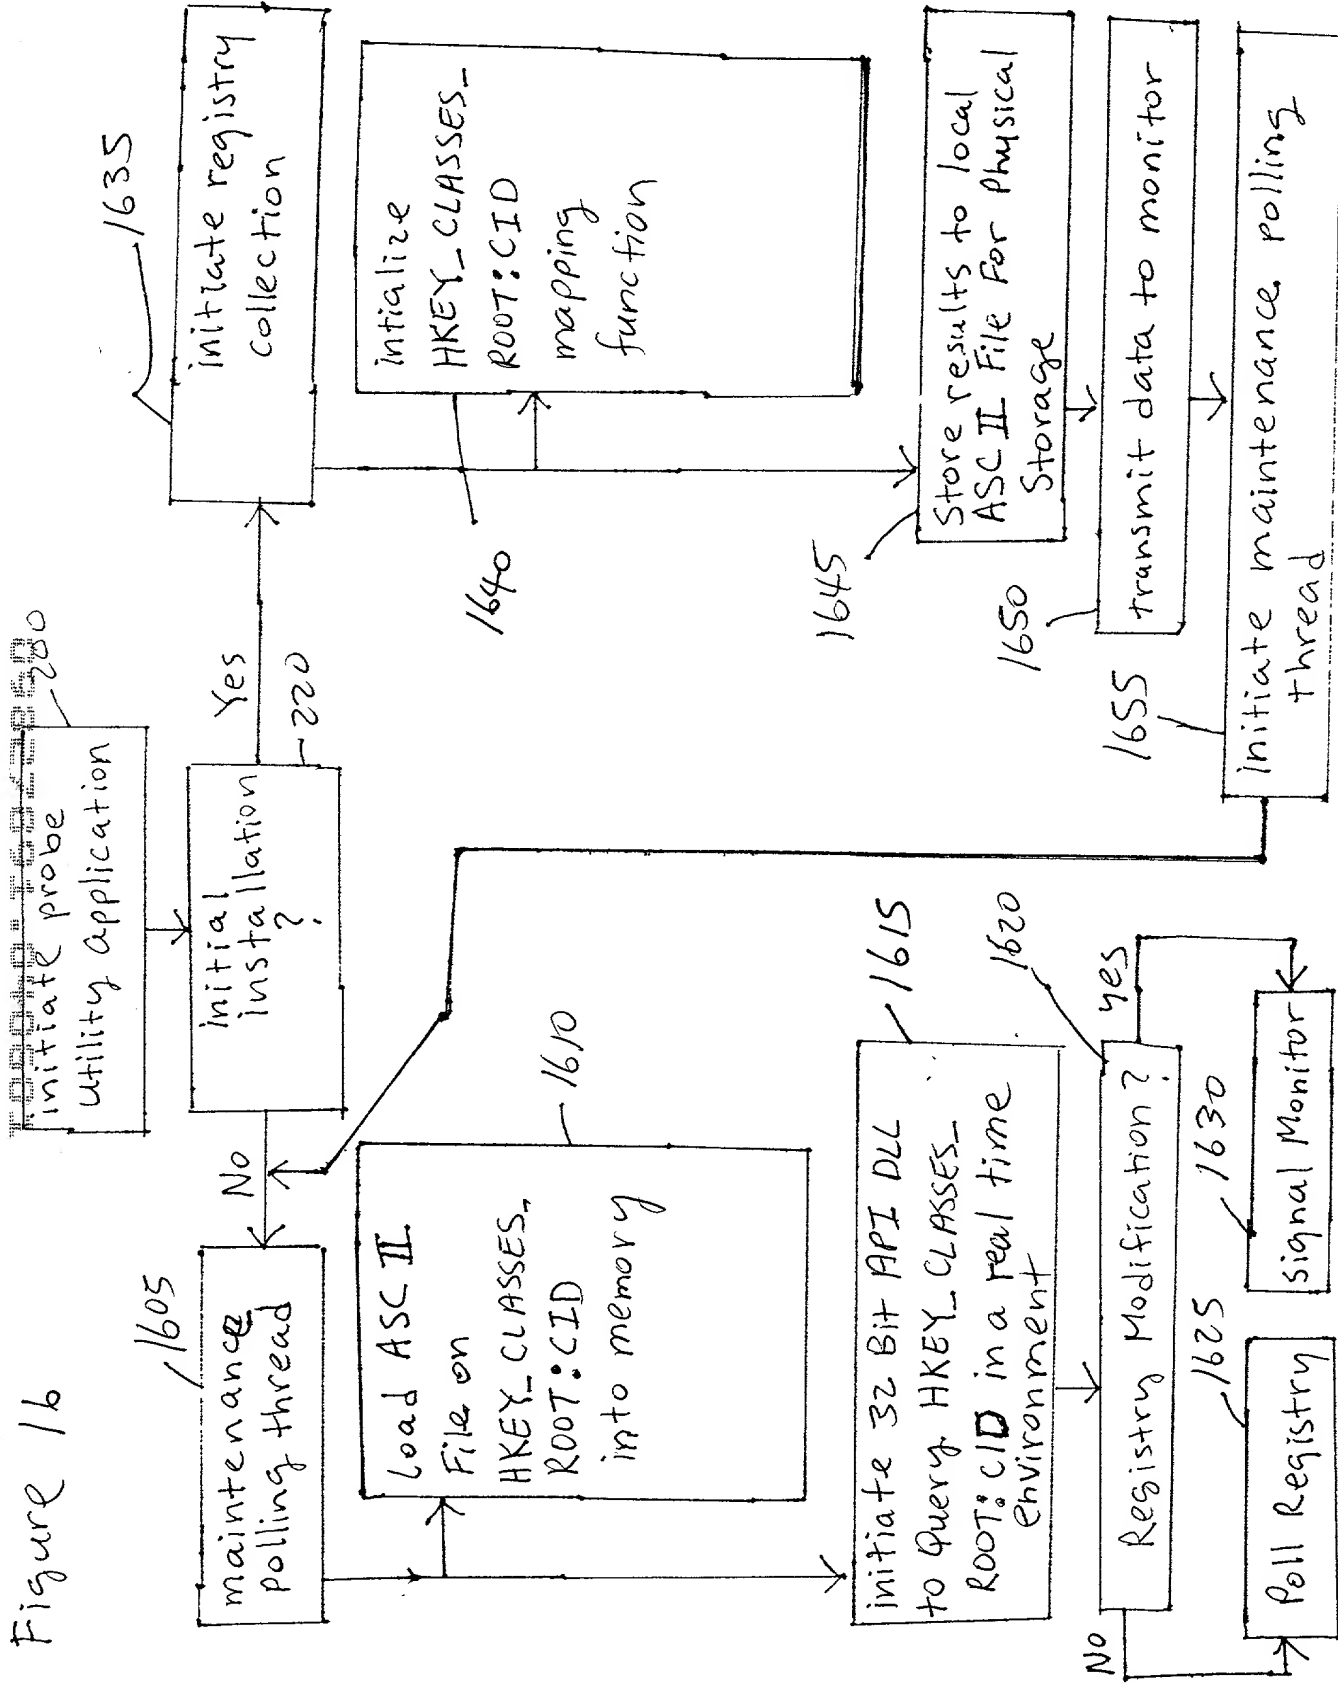 Figure 16
initiate probe
utility application
200
initial
installation
?
220
Yes
No
maintenance
polling thread
1605
Load ASC II
File on
HKEY_CLASSES_
ROOT:CID
into memory
1610
initiate 32 Bit API DLL
to Query HKEY_CLASSES_
ROOT:CID in a real time
environment
1615
Registry Modification?
1620
No
yes
Poll Registry
1625
signal Monitor
1630
initiate registry
collection
1635
intialize
HKEY_CLASSES_
ROOT:CID
mapping
function
1640
Store results to local
ASC II File For Physical
Storage
1645
transmit data to monitor
1650
initiate maintenance polling
thread
1655